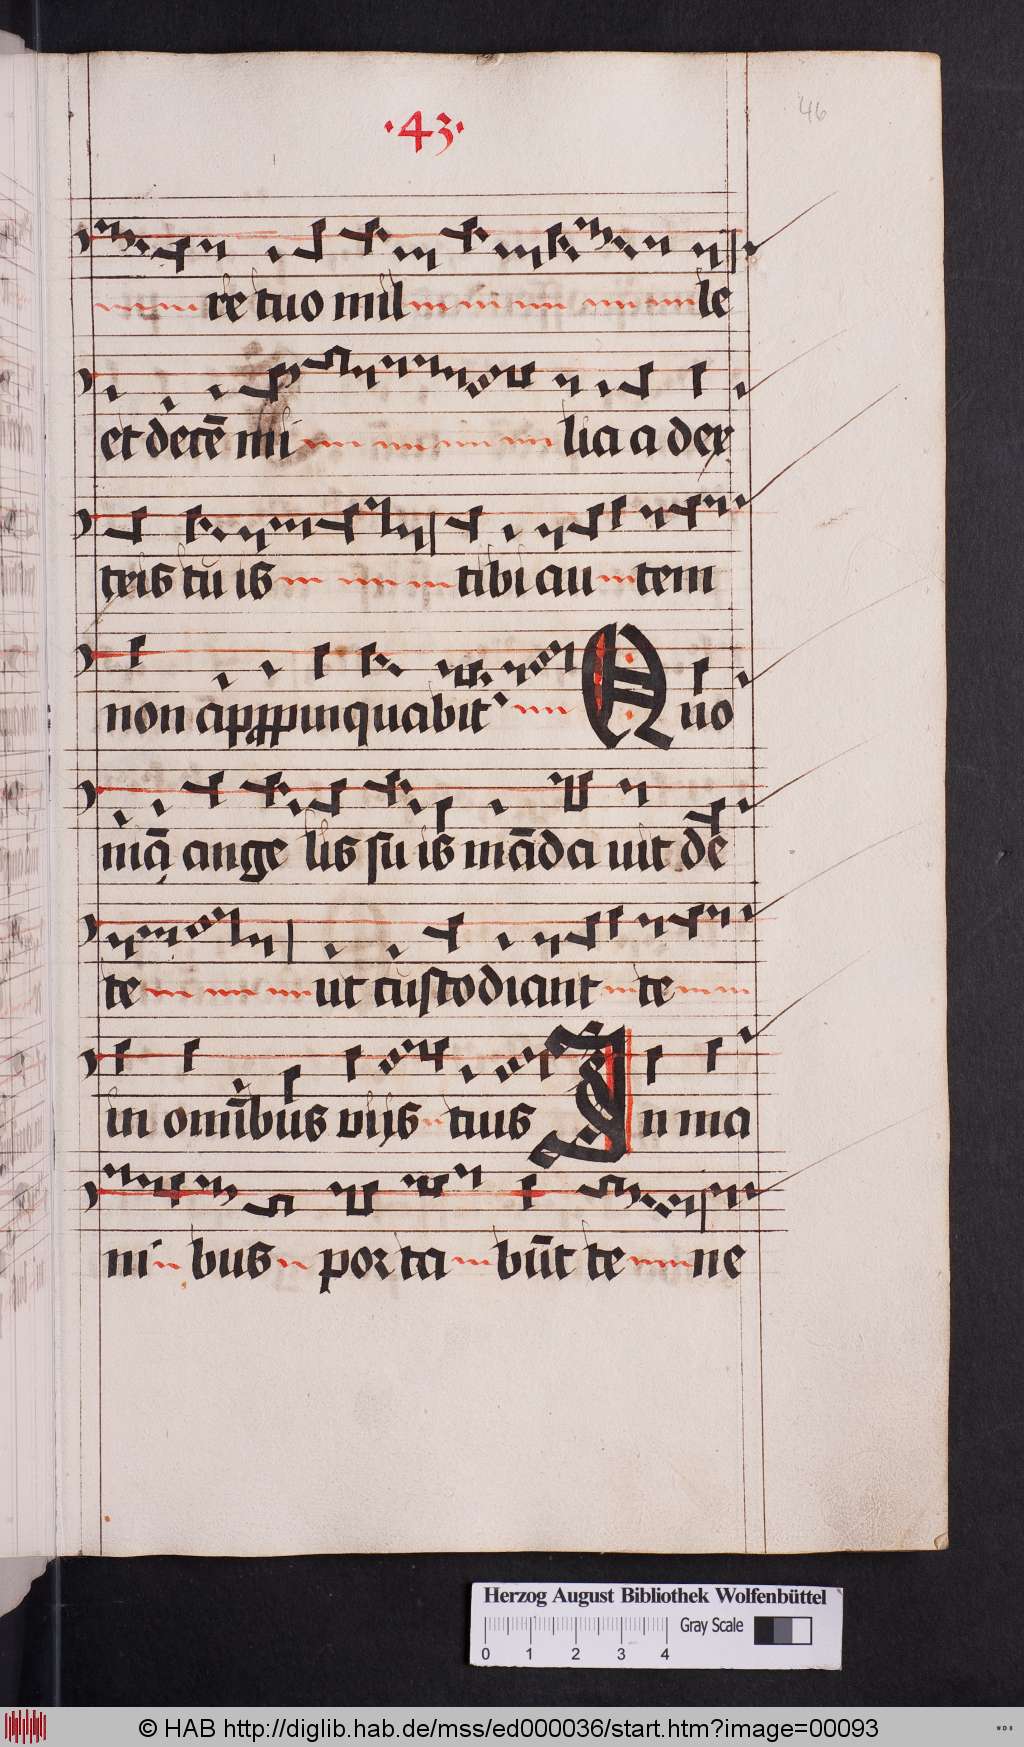 ·43·
46
re tuo mil le
et decē mi lia a dex
tris tu is tibi au tem
non appropinquabit Quo
niā ange lis su is māda uit de
te ut custodiant te
in omībus viis tuis In ma
ni bus por ta būt te ne
Herzog August Bibliothek Wolfenbüttel
0 1 2 3 4 Gray Scale
© HAB http://diglib.hab.de/mss/ed000036/start.htm?image=00093